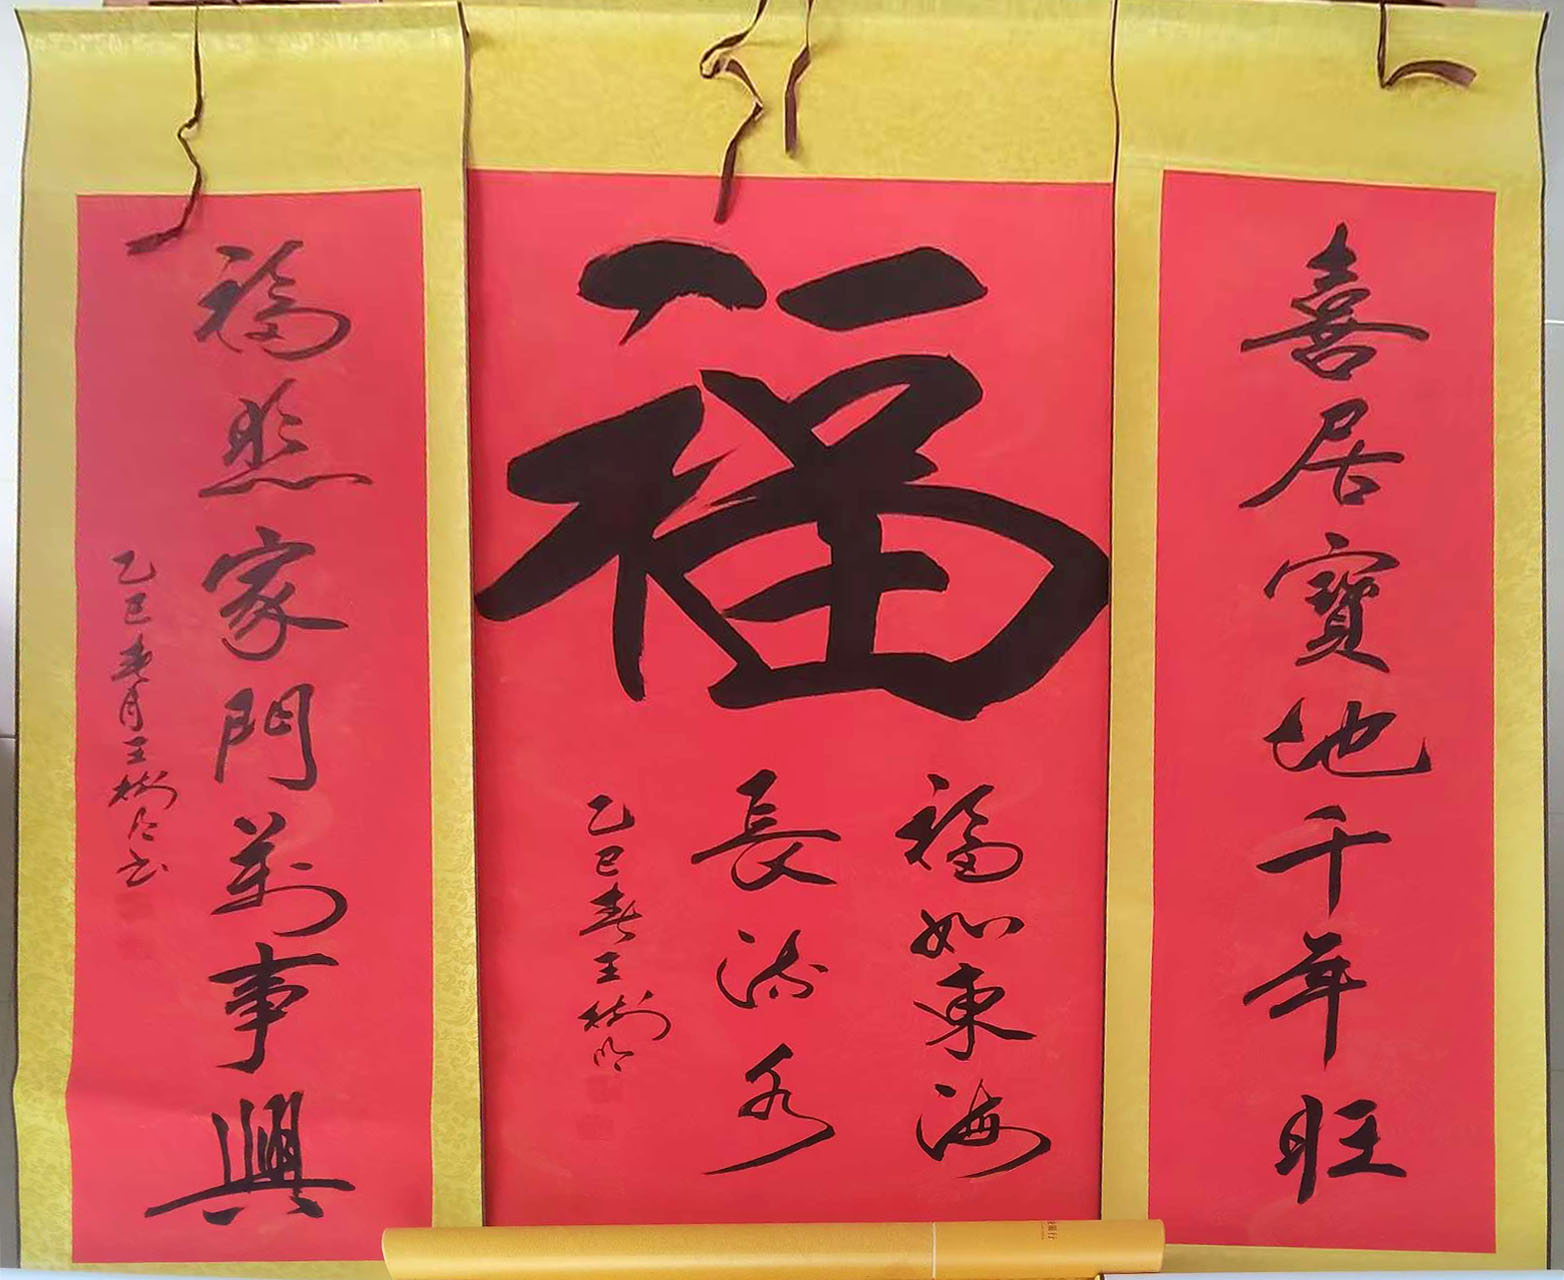 喜居寶地千年旺
福
福如東海
長流水
乙巳春王樹明
福照家門萬事興
乙巳春月王樹明書